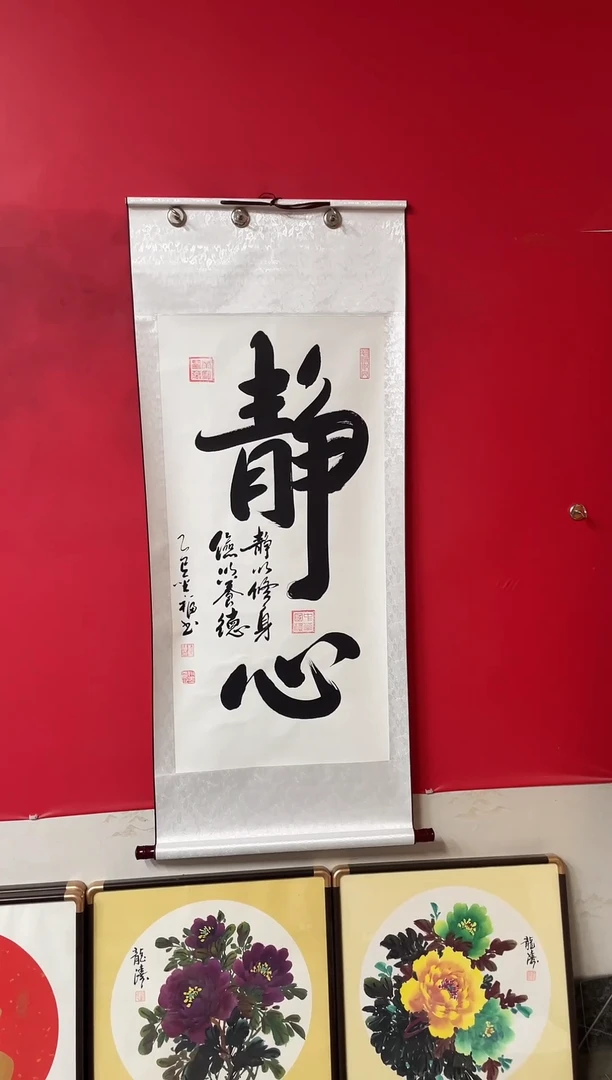 静
心
静以修身
俭以养德
乙巳
书
龍濤
龍濤